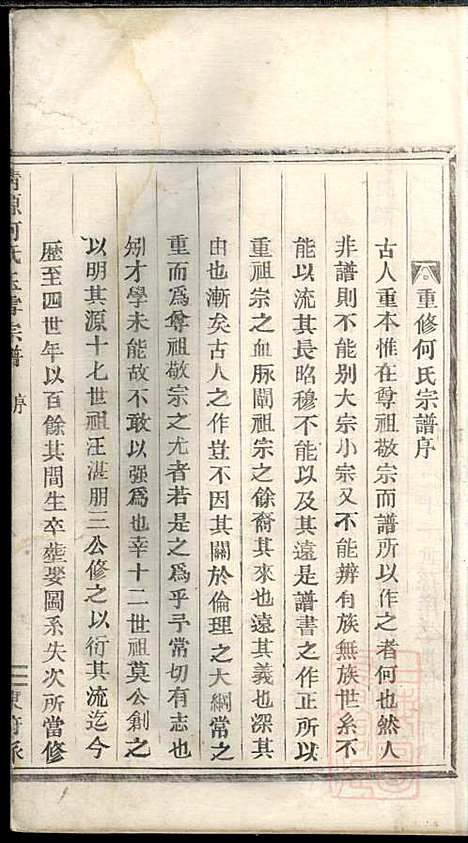 重修何氏宗譜序
古人重本惟在尊祖敬宗而譜所以作之者何也然人
非譜則不能別大宗小宗又不能辨有族無族世系不
能以流其長昭穆不能以及其遠是譜書之作正所以
重祖宗之血脉闡祖宗之餘裔其來也遠其義也深其
由也漸矣古人之作豈不因其關於倫理之大綱常之
重而爲尊祖敬宗之尤者若是之爲乎予常切有志也
矧才學未能故不敢以強爲也幸十二世祖莫公創之
以明其源十七世祖汪湛朋二公修之以衍其流迄今
歷至四世年以百餘其間生卒塟娶圖系失次所當修
清源何氏 宗譜 序 一 東府派